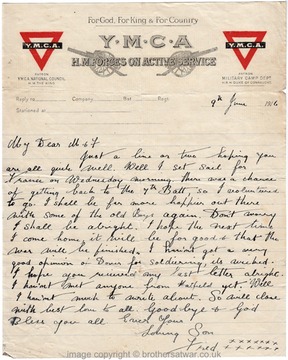 For God, For King & For Country
Y.M.C.A
H.M FORCES ON ACTIVE SERVICE
Y.M.C.A.
Y.M.C.A.
PATRON
Y.M.C.A. NATIONAL COUNCIL
H.M. THE KING
PATRON
MILITARY CAMP DEPT.
Reply to
Company
Bat
Regt.
Stationed at
9th June 1916
My Dear M & F
Just a line or two, hoping you
are all quite well. Well I set sail for
France on Wednesday morning, there was a chance
of getting back to the 7th Batt, so I volunteered
to go. I shall be far more happier out there
with some of the old boys again. Don't worry
I shall be alright. I hope the next time
I come home, it will be for good & that the
war will be finished. I haven't got a very
good opinion of for soldiering, its wicked.
I hope you received my last letter alright.
I haven't met anyone from Hatfield yet. Well
I haven't much to write about. So will close
with best love to all. Good-bye & God
Bless you all Ever Your
Loving Son
Fred.
image copyright © brothersatwar.co.uk